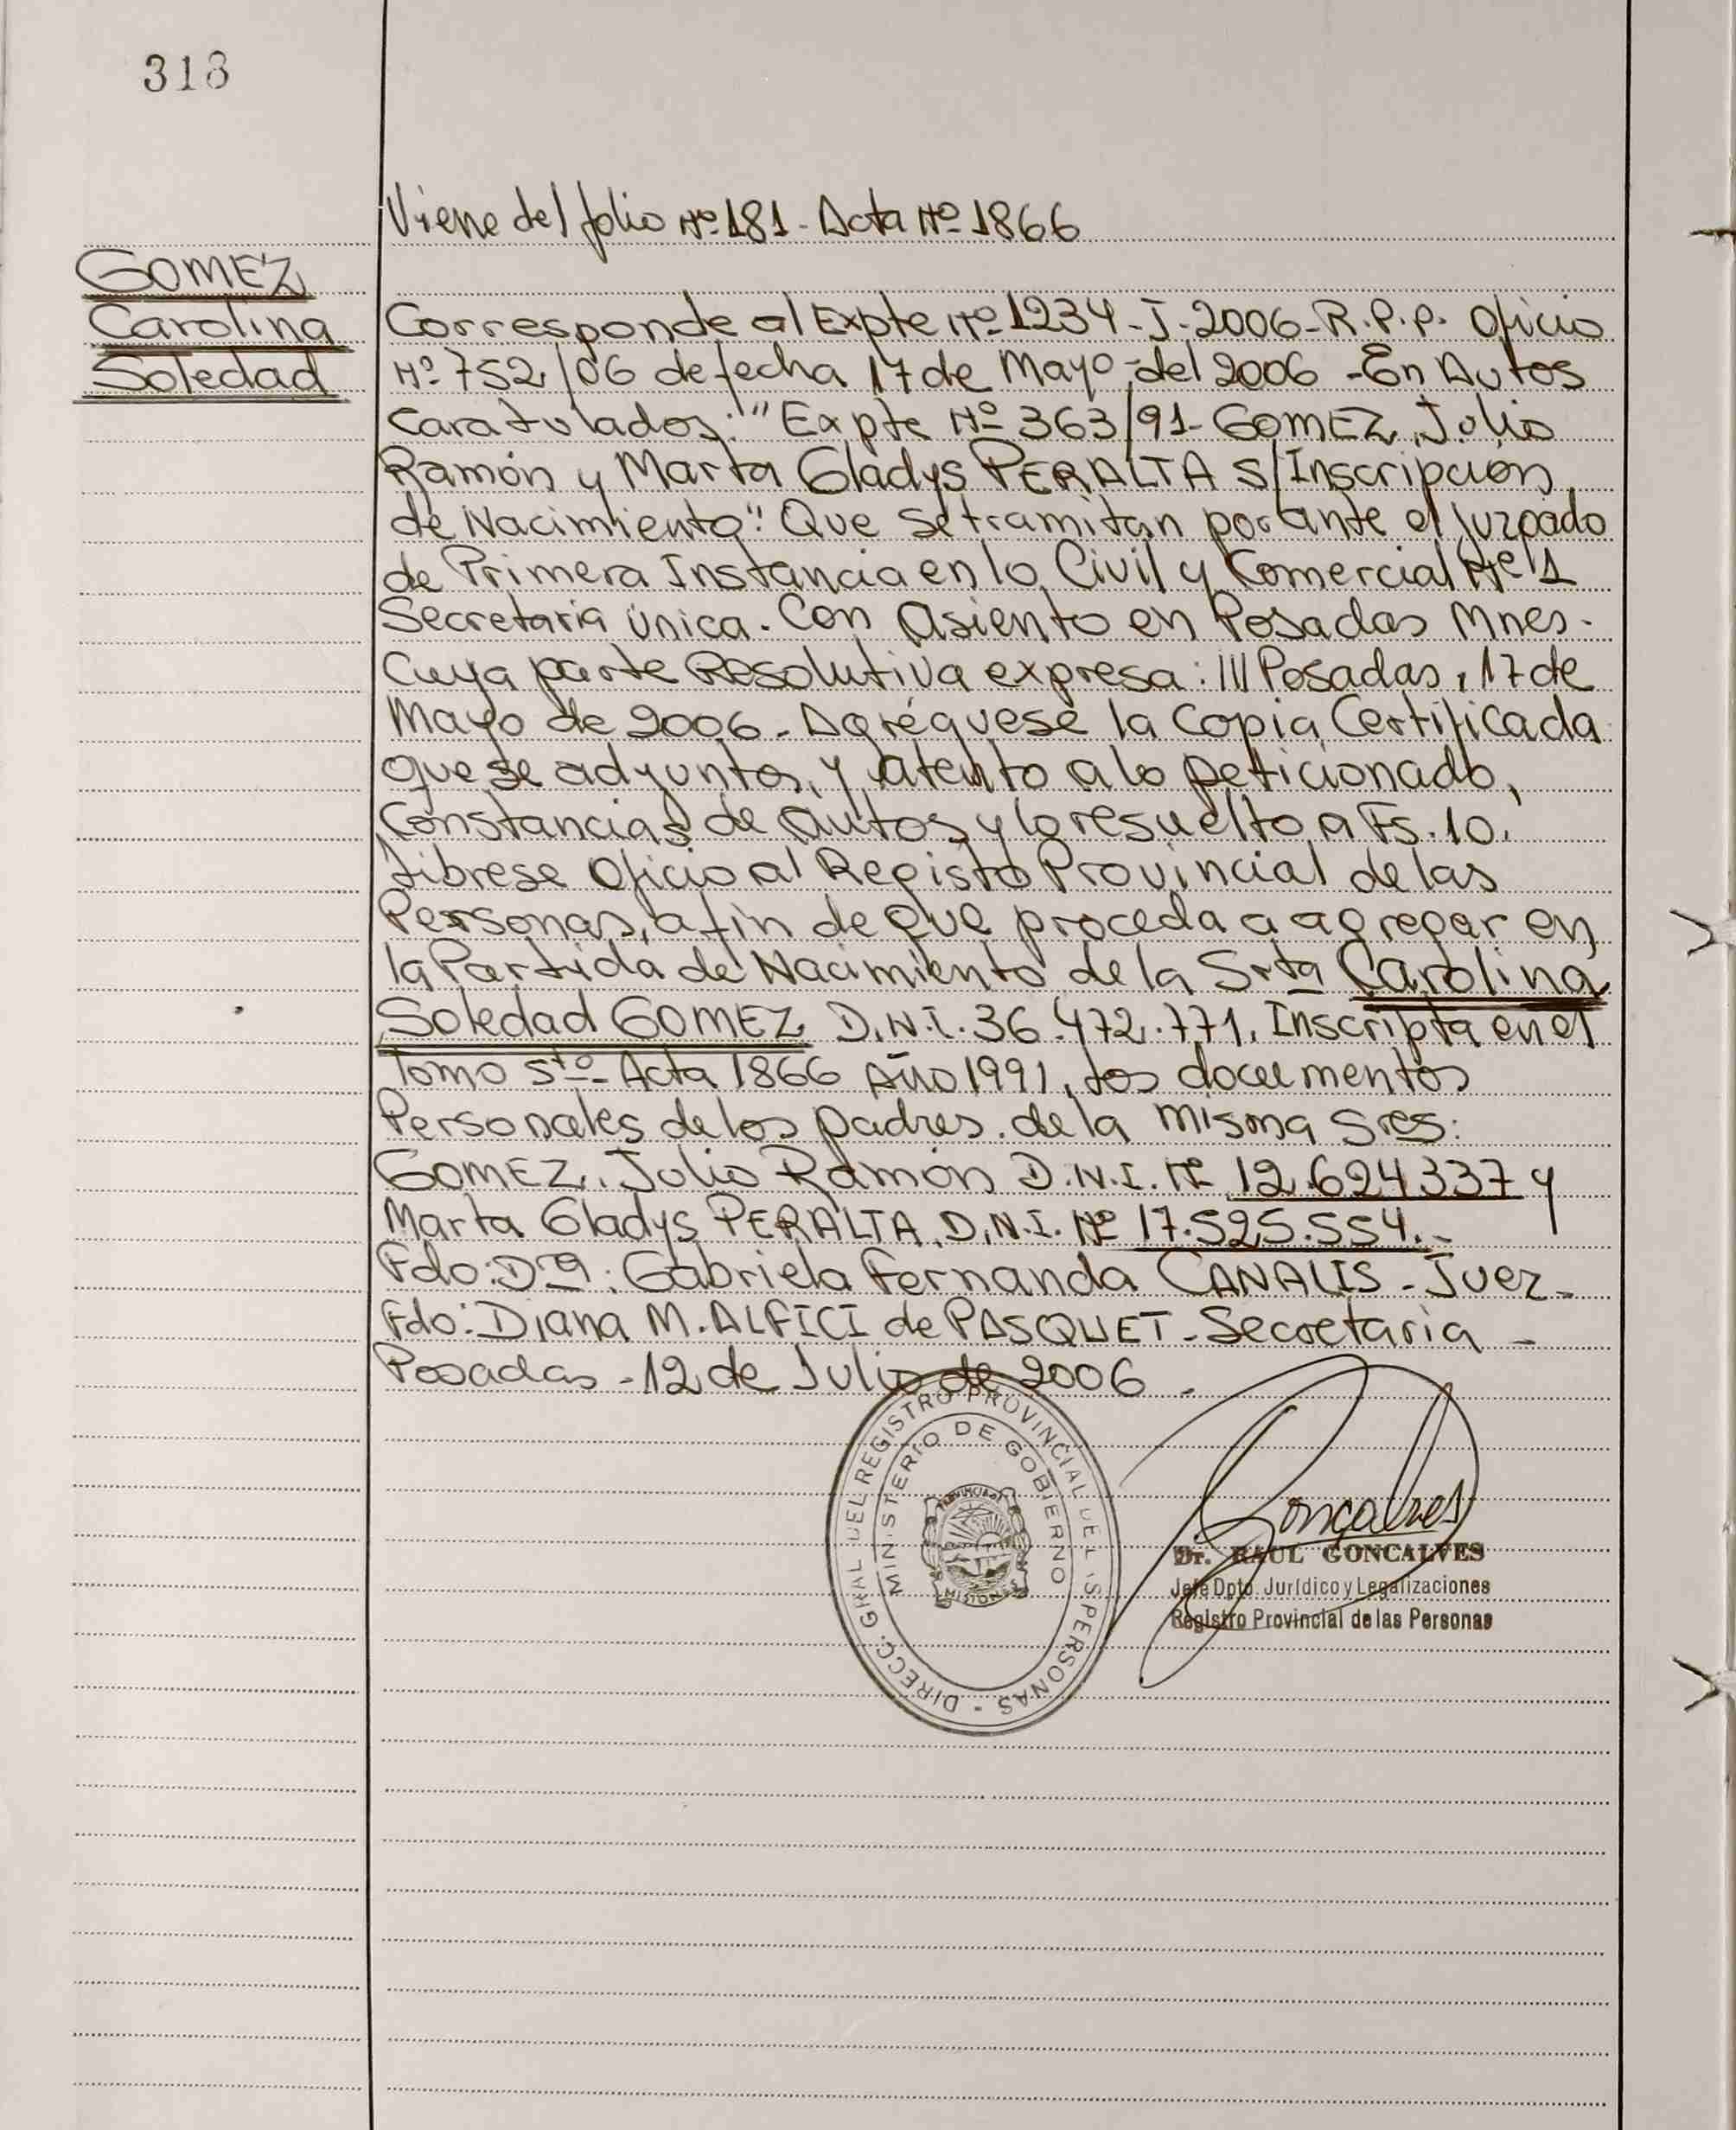 318
Viene del folio Nº 181 - Acta Nº 1866
GOMEZ
Carolina
Soledad
Corresponde al Expte Nº 1234 - J - 2006 - R.P.P. Oficio
Nº 752/06 de fecha 17 de Mayo del 2006 - En Autos
Caratulados: "Expte Nº 363/91 - GOMEZ, Julio
Ramón y Marta Gladys PERALTA S/Inscripción
de Nacimiento". Que se tramitan por ante el Juzgado
de Primera Instancia en lo Civil y Comercial Nº 1
Secretaría Única. Con Asiento en Posadas Mnes.
Cuya parte Resolutiva expresa: /// Posadas, 17 de
Mayo de 2006. Agréguese la Copia Certificada
que se adjunta, y atento a lo peticionado,
Constancias de autos y lo resuelto a Fs. 10.
Líbrese Oficio al Registro Provincial de las
Personas, a fin de que proceda a agregar en
la Partida de Nacimiento de la Srta Carolina
Soledad GOMEZ D.N.I. 36.472.771, Inscripta en el
Tomo 5to- Acta 1866 Año 1991, los documentos
Personales de los padres de la misma Sres:
GOMEZ, Julio Ramón D.N.I. Nº 12.624.337 y
Marta Gladys PERALTA, D.N.I. Nº 17.525.554.-
Fdo: Dra: Gabriela Fernanda CANALIS - Juez -
Fdo: Diana M. ALFICI de PASQUET - Secretaria -
Posadas - 12 de Julio de 2006.
DIRECC. GRAL DEL REGISTRO PROVINCIAL DE L.S PERSONAS -
MINISTERIO DE GOBIERNO
PROVINCIA DE
MISIONES
Gonçalves
Dr. RAUL GONCALVES
Jefe Dpto. Jurídico y Legalizaciones
Registro Provincial de las Personas